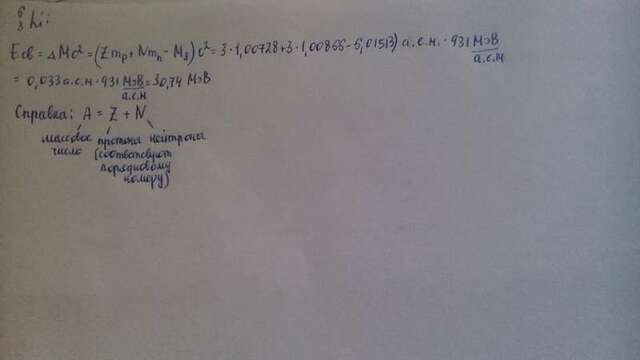 ⁶₃Li:
Eсв = ΔMc² = (Zmp + Nmn - Mя)c² = 3·1,00728+3·1,00866-6,01513) а.е.м. · 931 МэВ/а.е.м
= 0,033 а.е.м · 931 МэВ/а.е.м = 30,74 МэВ
Справка: A = Z + N
массовое протоны нейтроны
число (соответствуют
порядковому
номеру)